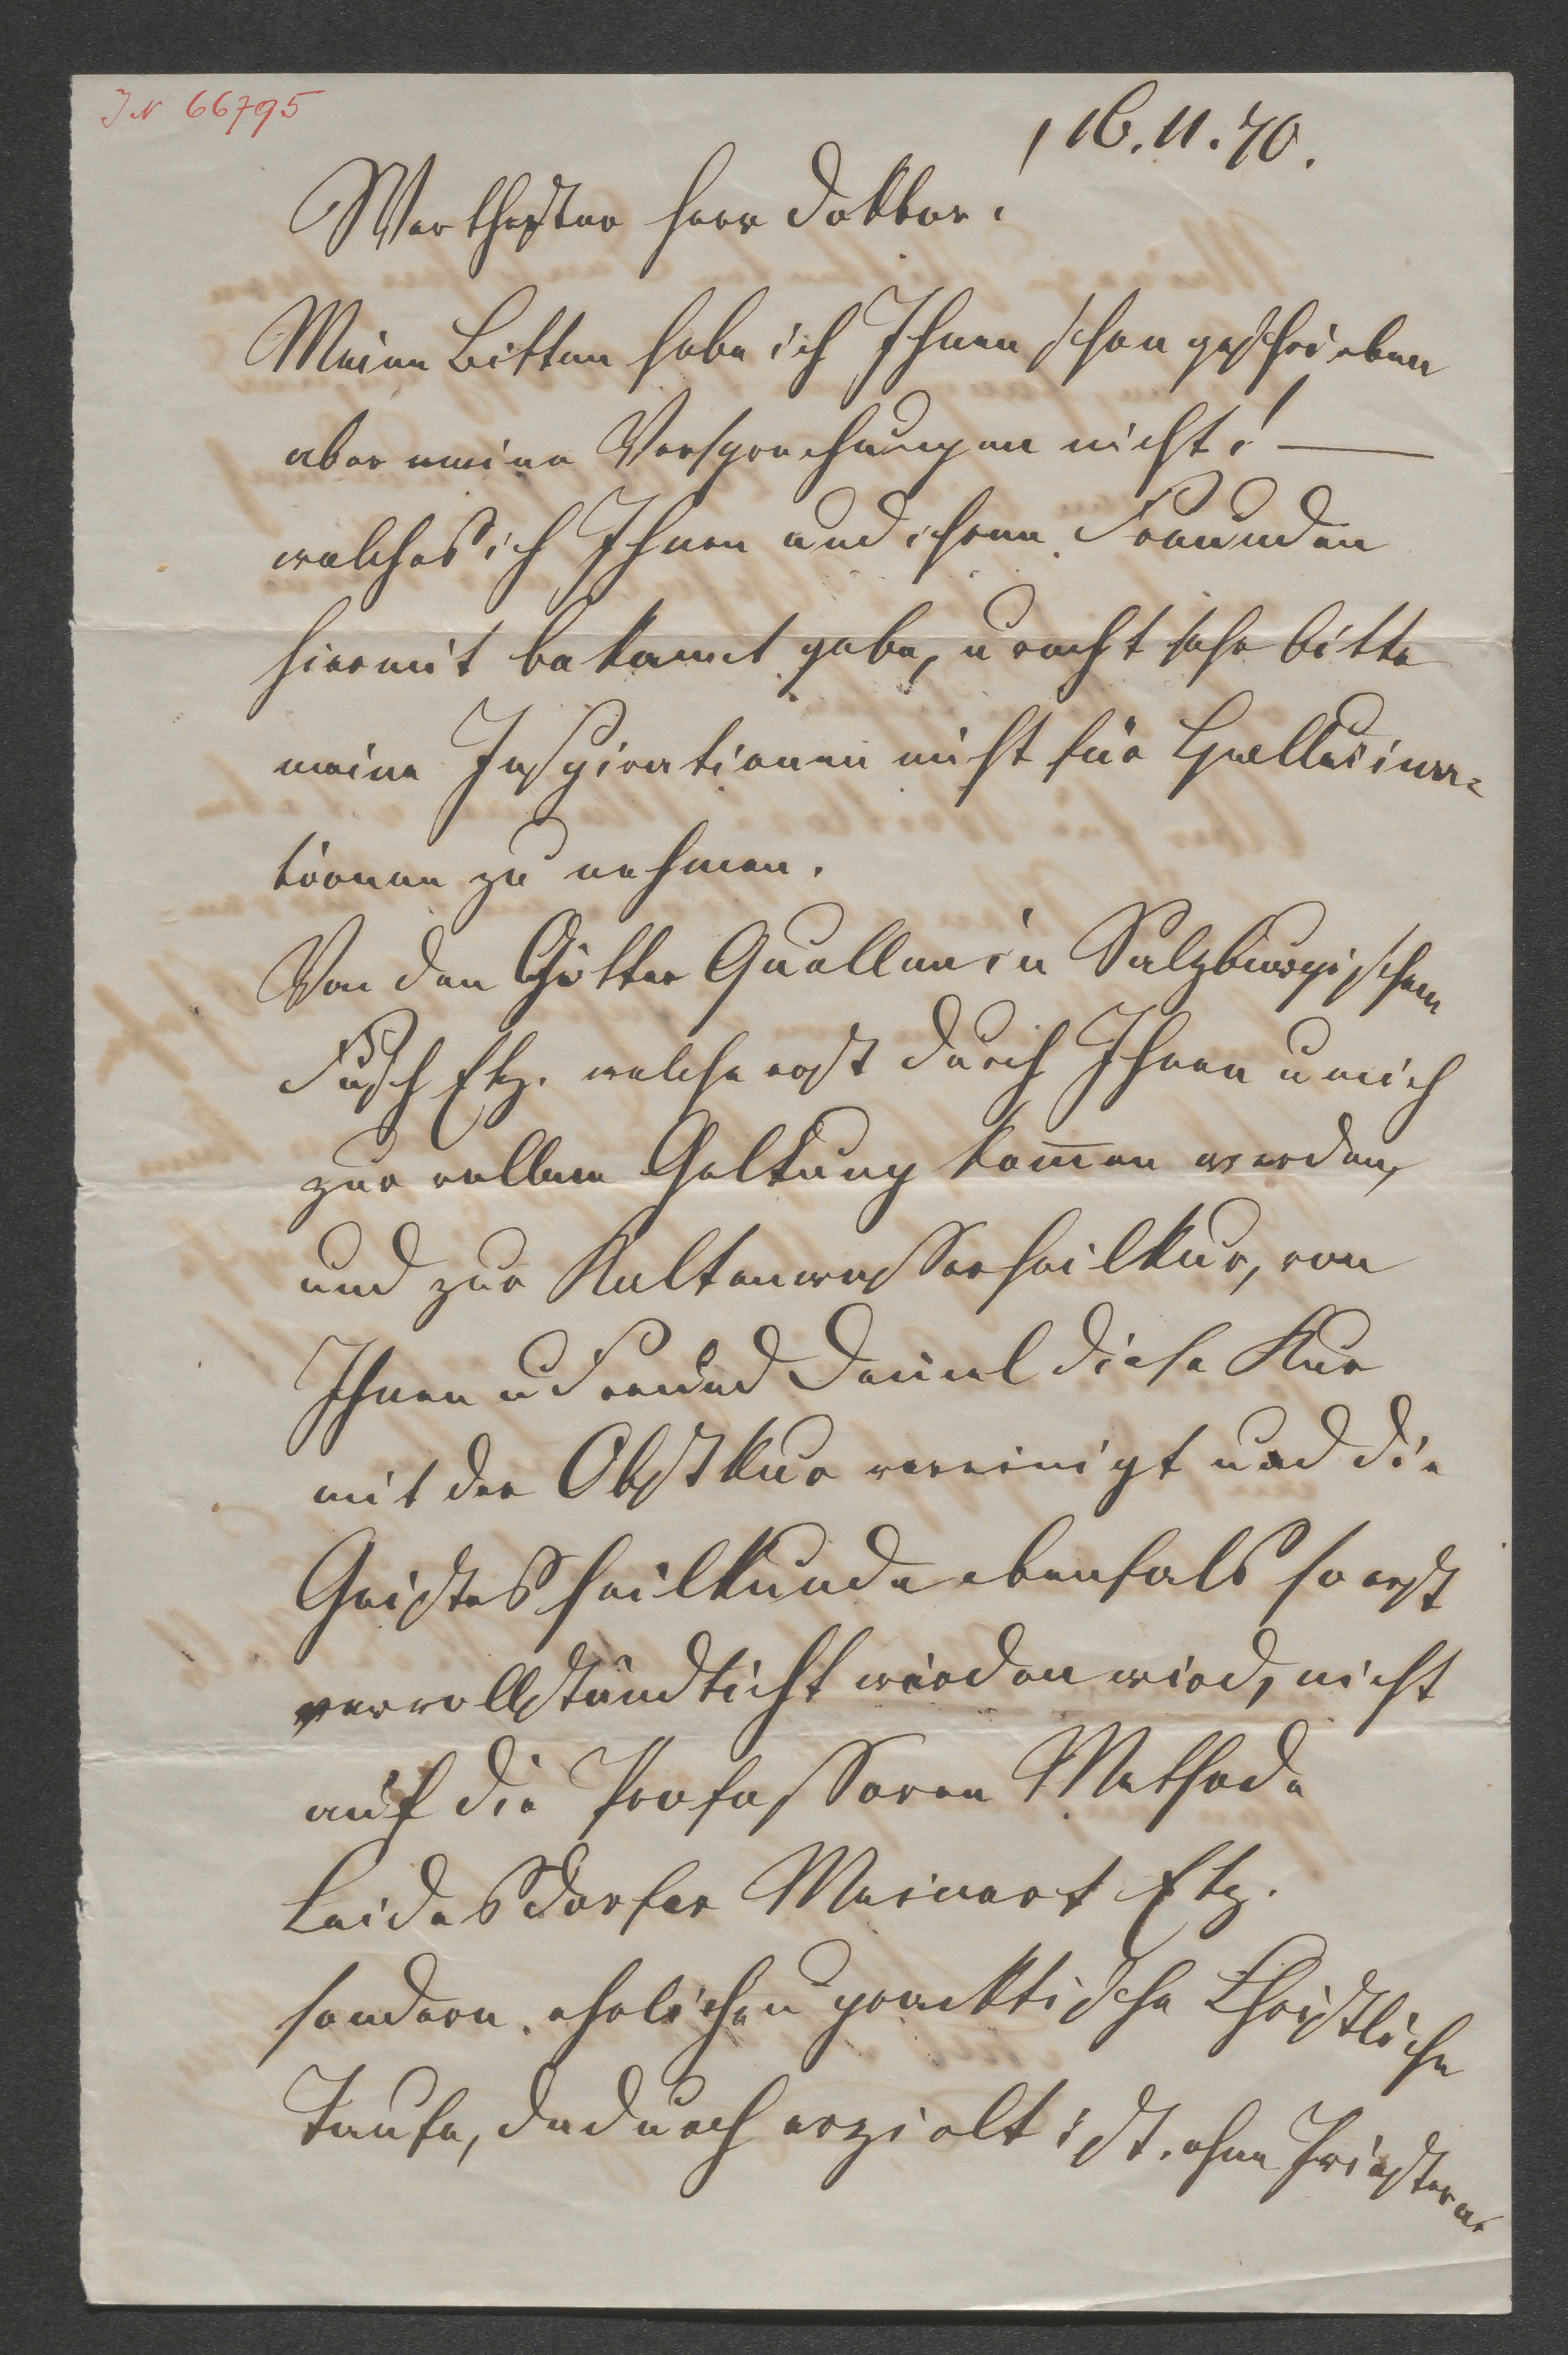 IN 66795
16.11.70.
Werthester Herr Doktor!
Meine Bitten habe ich Ihnen schon geschrieben
aber meine Versprechungen nicht! —
welches ich Ihnen und ihren Freunden
hiermit bekannt gebe, u recht sehr bitte
meine Inspirationen nicht für Hallusina=
tionen zu nehmen.
Von den Götter Quellen in Salzburgischem
Fusch Etz. welche erst durch Ihnen u mich
zur vollen Geltung kom̄en werden,
und zur Kaltenwasserheilkur, von
Ihnen u Freund diese Kur
mit der Obstkur vereinigt und die
Geistesheilkunde ebenfals so erst
vervollständlicht werden wird, nicht
auf die Professoren Methode
Leidesdorfer Meinert Etz.
sondern ehrliche u pracktische Christliche
Taufe, dadurch erzielt ist. ohne Priester